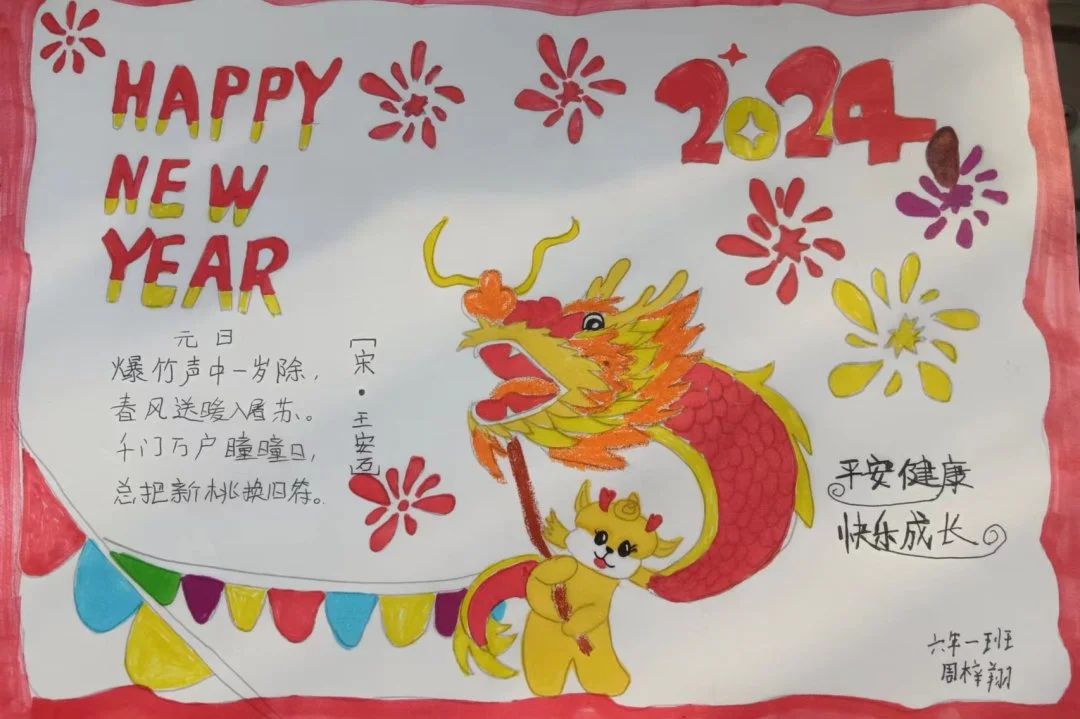 HAPPY
NEW
YEAR
2024
元日
[宋·王安石]
爆竹声中一岁除，
春风送暖入屠苏。
千门万户瞳瞳日，
总把新桃换旧符。
平安健康
快乐成长
六年一班
周梓翔